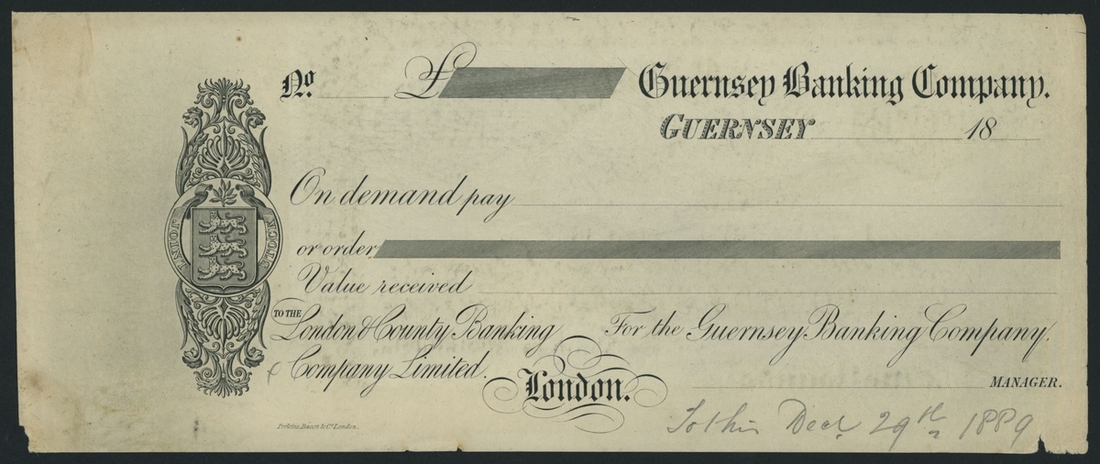 No. £ Guernsey Banking Company.
GUERNSEY 18
On demand pay
or order
Value received
TO THE London & County Banking Company Limited.
For the Guernsey Banking Company.
London.
MANAGER.
Perkins, Bacon & Co. London.
Dec. 29th 1889